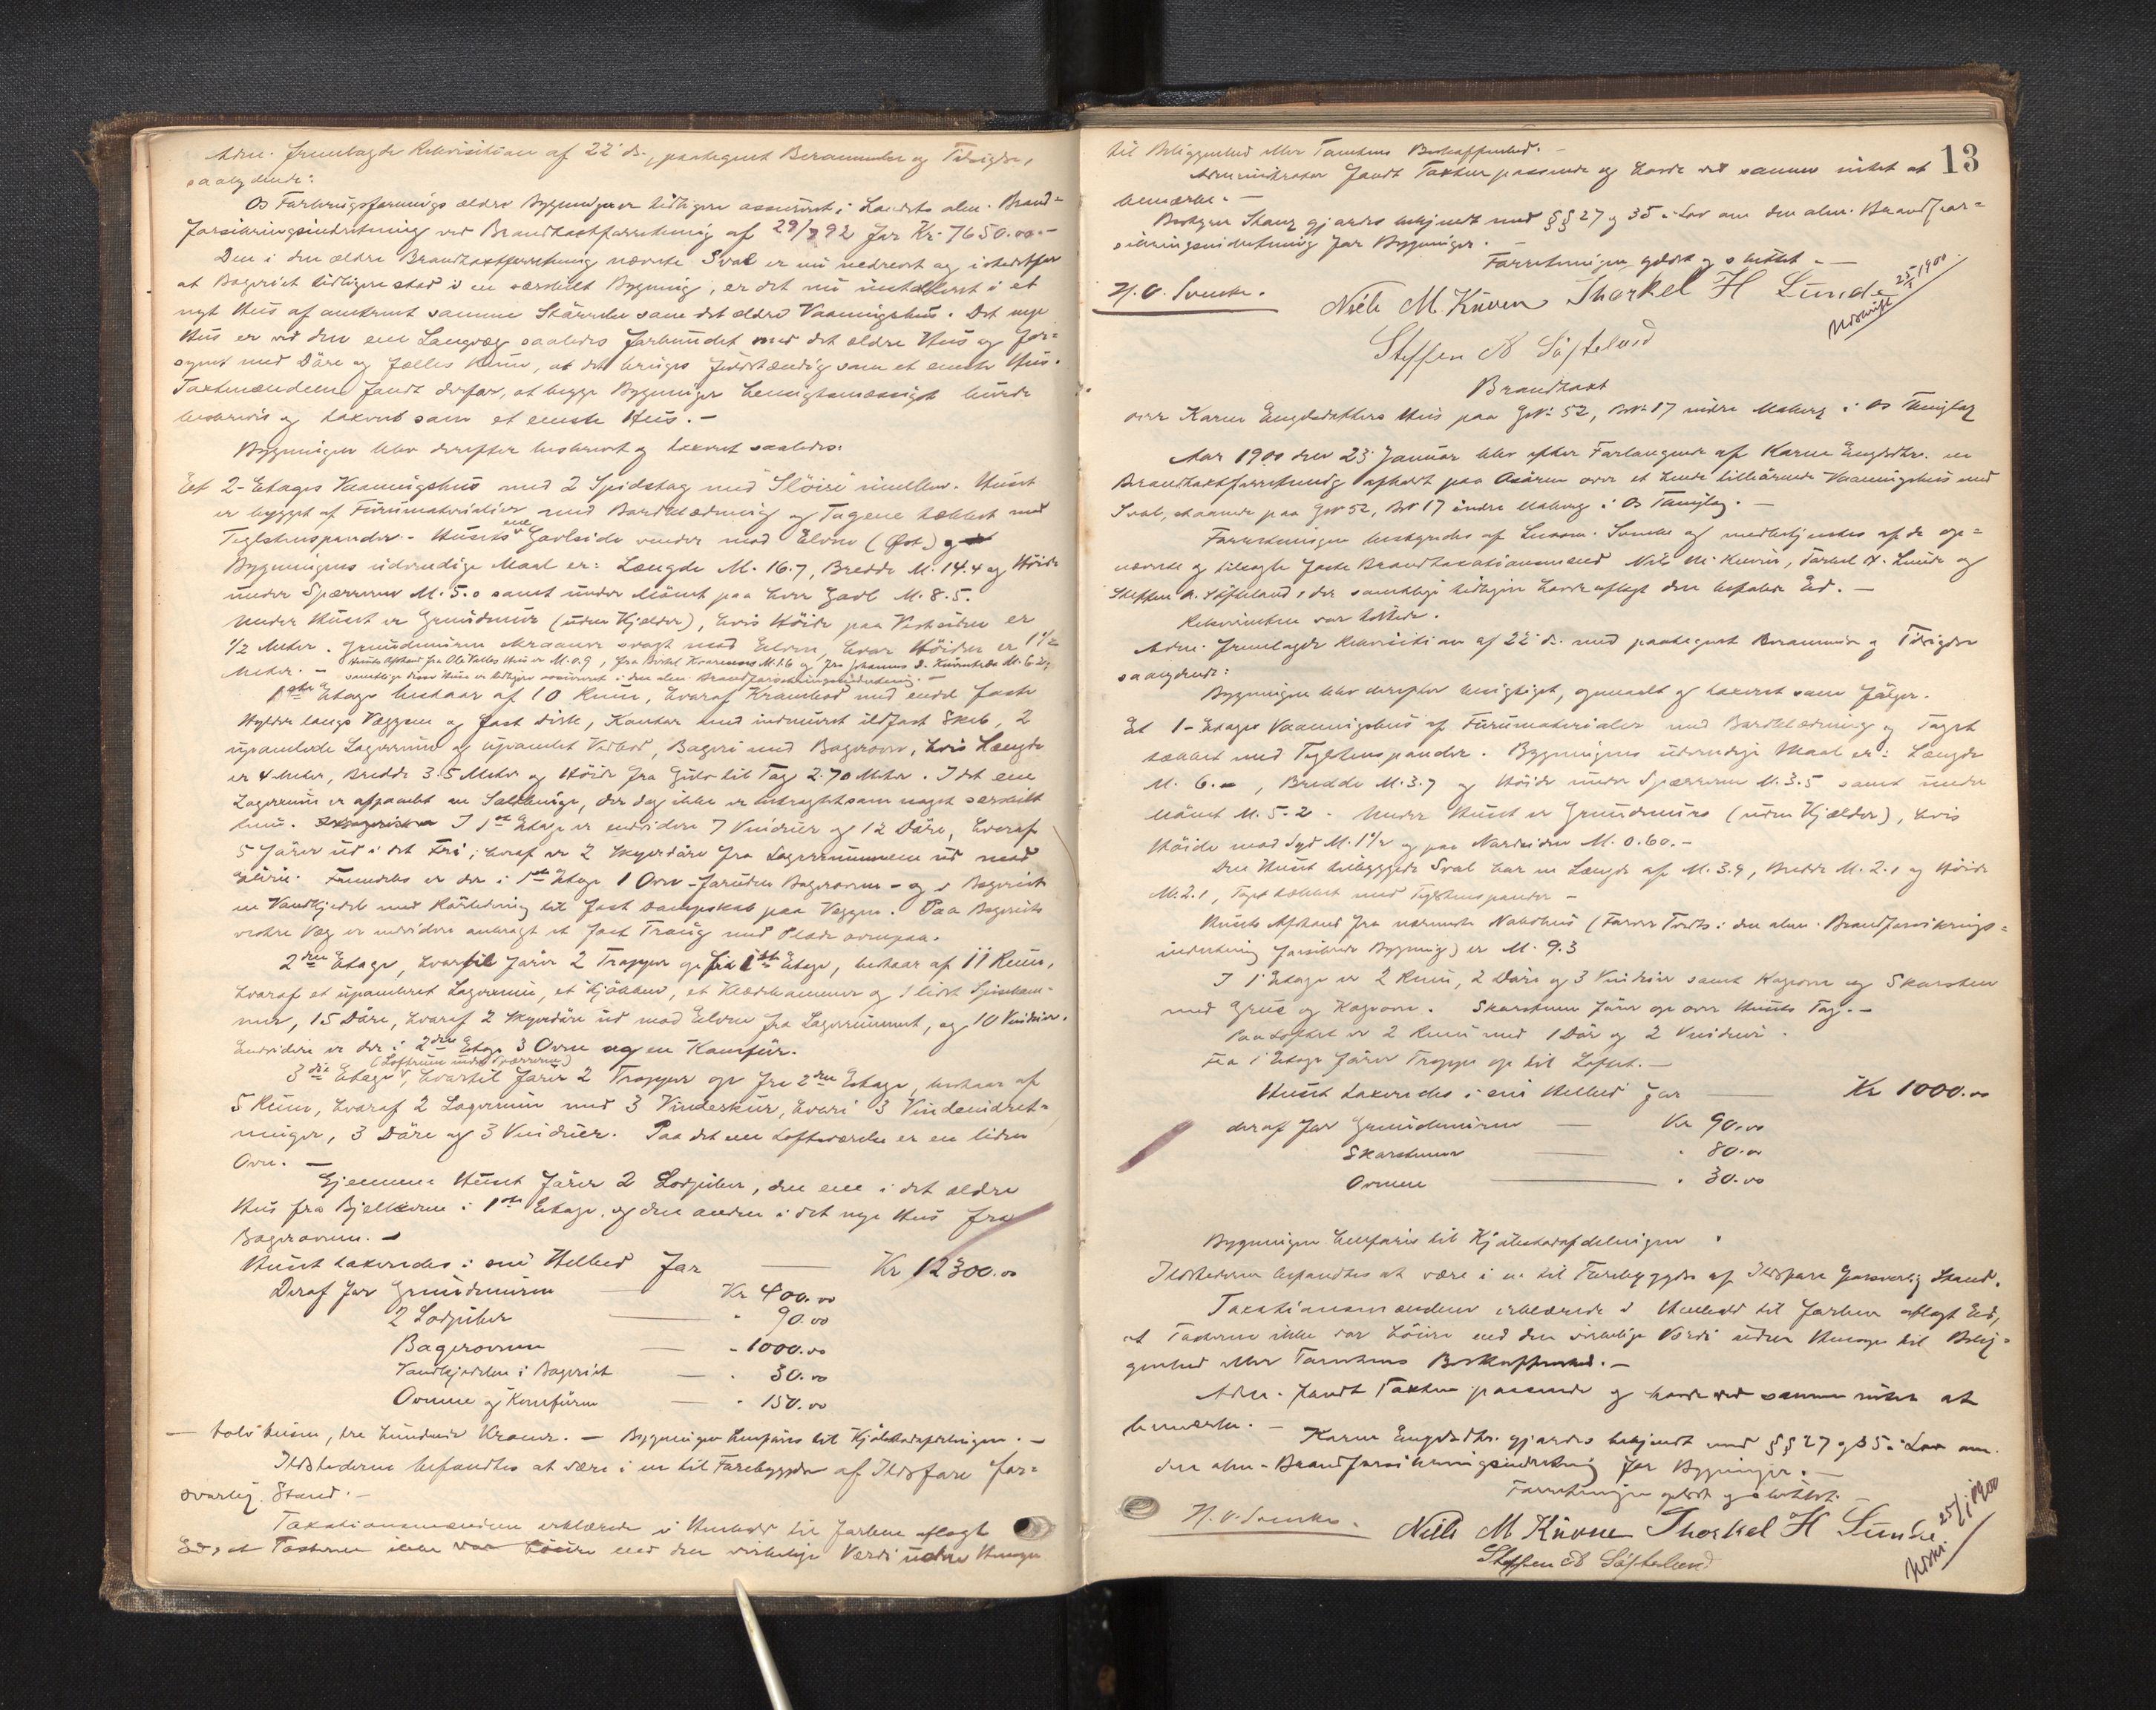 Adm. fremlagde Rekvisition af 22' ds., paategnet Berammelse og Tilsigelse,
saalydende:
Os Forbrugsforenings ældre Bygninger er tidligere assureret i Landets alm. Brand-
forsikringsindretning ved Brandtaxtforretning af 29/7 92 for Kr. 7650.00.-
Den i den ældre Brandtaxtforretning nævnte Sval er nu nedrevet og istedetfor
at Bageriet tidligere stod i en særskilt Bygning, er det nu installeret i et
nyt Hus af omtrent samme Størrelse som det ældre Vaaningshus. Det nye
Hus er ved den ene Langvæg saaledes forbundet med det ældre Hus og for-
synet med Døre og fælles Rum, at det bruges fuldstændig som et eneste Hus.
Taxtmændene fandt derfor, at begge Bygninger hensigtsmæssigst burde
beskrives og taxeres som et eneste Hus. -
Bygningen blev derefter beskrevet og taxeret saaledes:
Et 2-Etages Vaaningshus med 2 Spidstag med Sløiri imellem. Huset
er bygget af Furumaterialier med Bordklædning og Tagene tækket med
Teglstenspander. - Husets ene Gavlside vender mod Elven (Øst.)
Bygningens udvendige Maal er: Længde M. 16.7, Bredde M. 14.4 og Høide
under Spærrerne M. 5.0 samt under Mønet paa hver Gavl M. 8.5.
Under Huset er Grundmur (uden Kjelder), hvis Høide paa Vestsiden er
1/2 Meter. Grundmuren skraaner svagt mod Elven, hvor Høiden er 1 1/2
Meter. - Husets Afstand fra Ole Valles Hus er M. 0.9, fra Birkel M. 1.6 og fra Johannes
samtlige disse Huse er tidligere assureret i den alm. Brandforsikringsindretning. -
1ste Etage bestaar af 10 Rum, hvoraf Krambod med endel faste
Hylder langs Væggene og fast Disk, Kontor med indmuret ildfast Skab, 2
upanelede Lagerrum og upanelet Vedbod, Bageri med Bagerovn, hvis Længde
er 4 Meter, Bredde 3.5 Meter og Høide fra Gulv til Tag 2.70 Meter. I det ene
Lagerrum er afpanelt en Saltbinge, der dog ikke er betragtet som noget særskilt
Rum. I 1ste Etage er endvidere 7 Vinduer og 12 Døre, hvoraf
5 fører ud i det Fri; hvoraf er 2 Skyvedøre fra Lagerrummene ud mod
Elven. Fremdeles er der i 1ste Etage 1 Ovn - foruden Bagerovnen - og i Bageriet
en Vandkjedel med Rørledning til fast Dampskab paa Væggen. Paa Bageriets
vestre Væg er endvidere anbragt et fast Traug med Plade ovenpaa.
2den Etage, hvortil fører 2 Trapper op fra 1ste Etage, bestaar af 11 Rum,
hvoraf et upaneleret Lagerrum, et Kjøkken, et Klædekammer og 1 lidet Spiskam-
mer, 15 Døre, hvoraf 2 Skyvedøre ud mod Elven fra Lagerrummet, og 10 Vinduer.
Endvidere er der i 2den Etage 3 Ovne og en Komfur.
(Loftrum under Spærrerne)
3die Etage, hvortil fører 2 Trapper op fra 2den Etage, bestaar af
5 Rum, hvoraf 2 Lagerrum med 3 Vindeskur, hvori 3 Vindeindret-
ninger, 3 Døre og 3 Vinduer. Paa det ene Loftværelse er en liden
Ovn. -
Gjennem Huset fører 2 Lodpiber, den ene i det ældre
Hus fra Bjelkerne i 1ste Etage og den anden i det nye Hus fra
Bagerovnen. -
Huset taxeredes i sin Helhed for Kr 12300.00
Deraf for Grundmuren Kr 400.00
2 Lodpiber " 90.00
Bagerovnen " 1000.00
Vandkjedelen i Bageriet " 30.00
Ovnene og Komfuren " 150.00
- tolv tusen, tre hundrede Kroner. - Bygningen henføres til Kjøbstadafdelingen. -
Ildstederne befandtes at være i en til Forebyggelse af Ildsfare for-
svarlig Stand. -
Taxationsmændene erklærede i Henhold til forhen aflagt
Ed, at Taxterne ikke var høiere end den virkelige Værdi uden Hensyn
13
til Beliggenhed eller Tomtens Beskaffenhed. -
Administrator fandt Taxten passende og havde ved samme intet at
bemærke. -
Bestyrer Skang gjordes bekjendt med §§ 27 og 35 i Lov om den alm. Brandfor-
sikringsindretning for Bygninger. -
Forretningen oplæst og sluttet. -
N. O. Svenke. Nils M. Kuven Thorkel H Lunde
Steffen A Søfteland
Udskrift 25/1 1900.
Brandtaxt
over Karen Engdsdatters Hus paa Gno. 52, Bno. 17 indre Moberg i Os Thinglag
Aar 1900 den 23 Januar blev efter Forlangende af Karen Engdsdtr. en
Brandtaxtforretning afholdt paa Osøren over et hende tilhørende Vaaningshus med
Sval, staaende paa Gno 52, Bno 17 indre Moberg i Os Thinglag. -
Forretningen bestyredes af Lensm. Svenke og medbetjentes af de op-
nævnte og tiltagte faste Brandtaxationsmænd Nils M. Kuven, Torkel H. Lunde og
Steffen A. Søfteland, der samtlige tidligere havde aflagt den befalede Ed. -
Rekvirenten var tilstede.
Adm. fremlagde Rekvisition af 22' ds. med paategnet Berammelse og Tilsigelse
saalydende:
Bygningen blev derefter besigtiget, opmaalt og taxeret som følger.
Et 1-Etages Vaaningshus af Furumaterialer med Bordklædning og Taget
tækket med Teglstenspander. Bygningens udvendige Maal er: Længde
M. 6.-, Bredde M. 3.7 og Høide under Spærrerne M. 3.5 samt under
Mønet M. 5.2. Under Huset er Grundmur (uden Kjælder), hvis
Høide mod Syd M. 1 1/2 og paa Nordsiden M. 0.60. -
Den Huset tilbyggede Sval har en Længde af M. 3.9, Bredde M. 2.1 og Høide
M. 2.1, Taget tækket med Teglstenspander -
Husets Afstand fra nærmeste Nabohus (Farver Tvedts i den alm. Brandforsikrings-
indretning forsikrede Bygning) er M. 9.3
I 1' Etage er 2 Rum, 2 Døre og 3 Vinduer samt Kogeovn og Skorsten
med Grue og Kogeovn. Skorstenen fører op over Husets Tag. -
Paa Loftet er 2 Rum med 1 Dør og 2 Vinduer.
Fra 1' Etage fører Trappe op til Loftet. -
Huset taxeredes i sin Helhed for Kr 1000.00
deraf for Grundmuren Kr 90.00
Skorstenen " 80.00
Ovnene " 30.00
Bygningen henføres til Kjøbstadafdelingen.
Ildstederne befandtes at være i en til Forebyggelse af Ildsfare forsvarlig Stand.
Taxationsmændene erklærede i Henhold til forhen aflagt Ed,
at Taxterne ikke var høiere end den virkelige Værdi uden Hensyn til Belig-
genhed eller Tomtens Beskaffenhed. -
Adm. fandt Taxten passende og havde ved samme intet at
bemærke. -
Karen Engdsdtr. gjordes bekjendt med §§ 27 og 35 i Lov om
den alm. Brandforsikringsindretning for Bygninger. -
Forretningen oplæst og sluttet. -
N. O. Svenke. Nils M Kuven Thorkel H Lunde
Steffen A Søfteland
Udskr. 25/1 1900